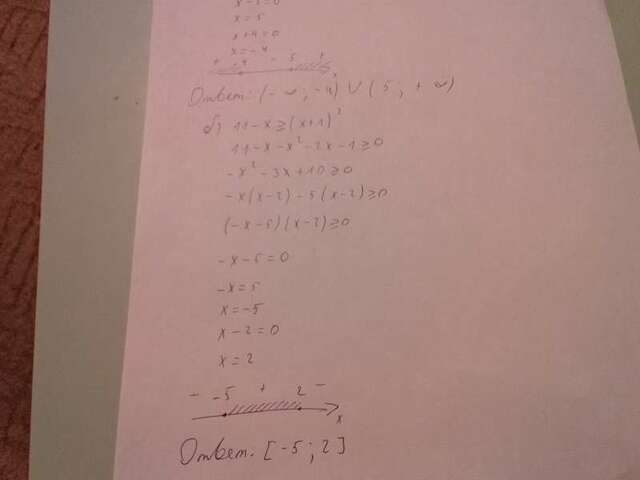 x-5=0
x=5
x+4=0
x=-4
+ -4 - 5 + x
Ответ: (-∞; -4) ∪ (5; +∞)
б) 11-x≥(x+1)²
11-x-x²-2x-1≥0
-x²-3x+10≥0
-x(x-2)-5(x-2)≥0
(-x-5)(x-2)≥0
-x-5=0
-x=5
x=-5
x-2=0
x=2
- -5 + 2 - x
Ответ: [-5; 2]